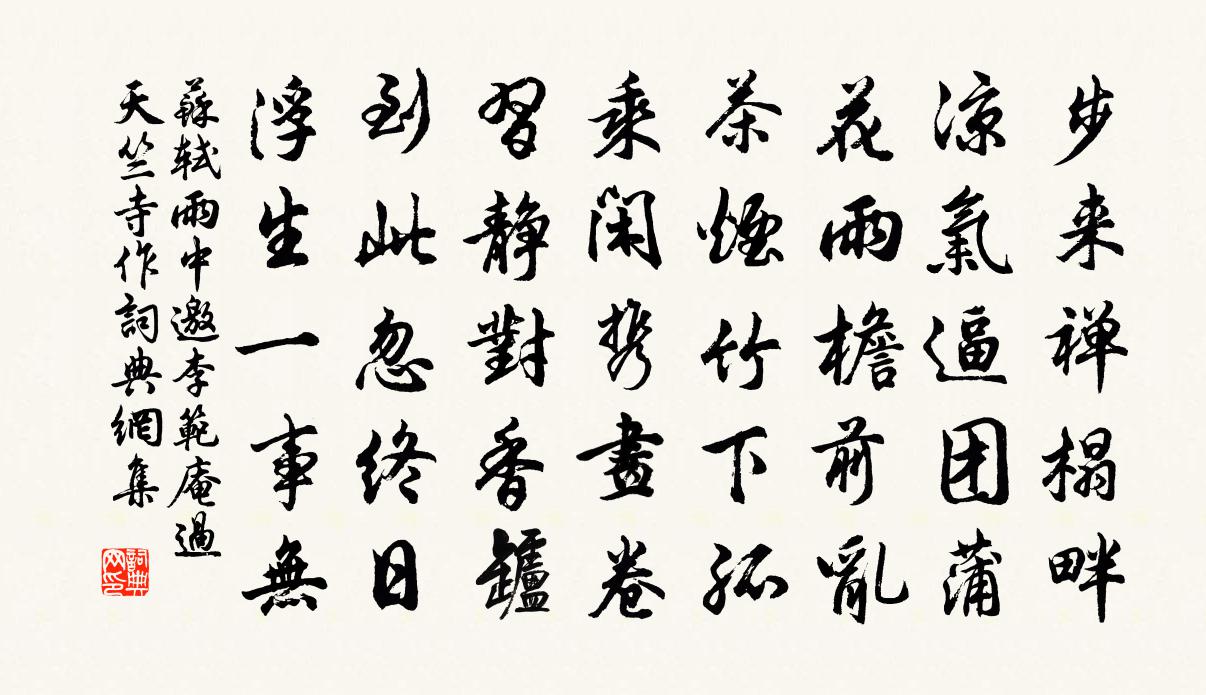 步来禅榻畔
涼氣逼团蒲
花雨檐前亂
茶煙竹下孤
乘閑携畫卷
習靜對香鑪
到此忽終日
浮生一事無
蘇軾雨中邀李範庵過
天竺寺作詞典網集
詞典
网印